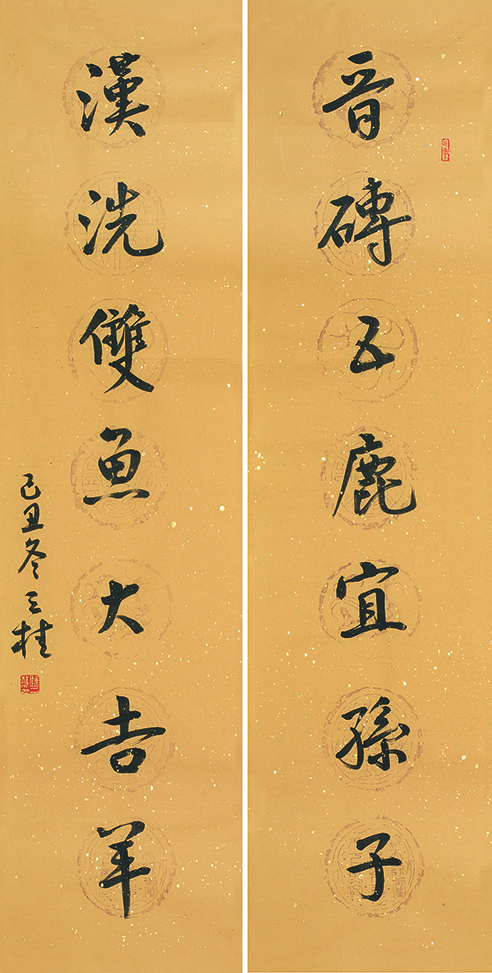 晋磚五鹿宜孫子
漢洗雙魚大吉羊
己丑冬三桂